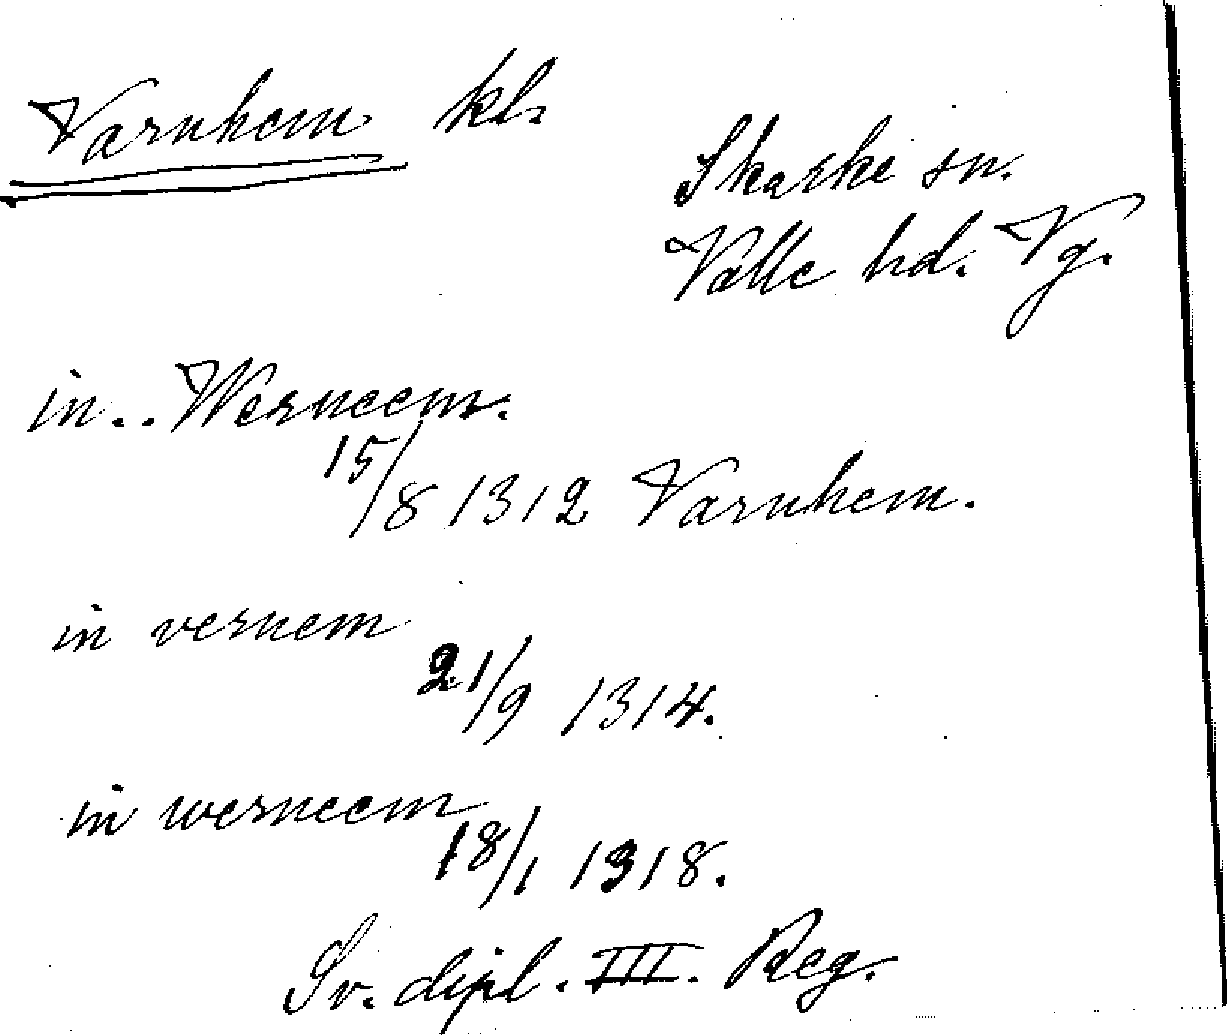 Varnhem kl.
Skarke sn.
Valle hd. Vg.
in.. Werneem.
15/8 1312 Varnhem.
in vernem
21/9 1314.
in werneem
18/1 1318.
Sv. dipl. III. Reg.